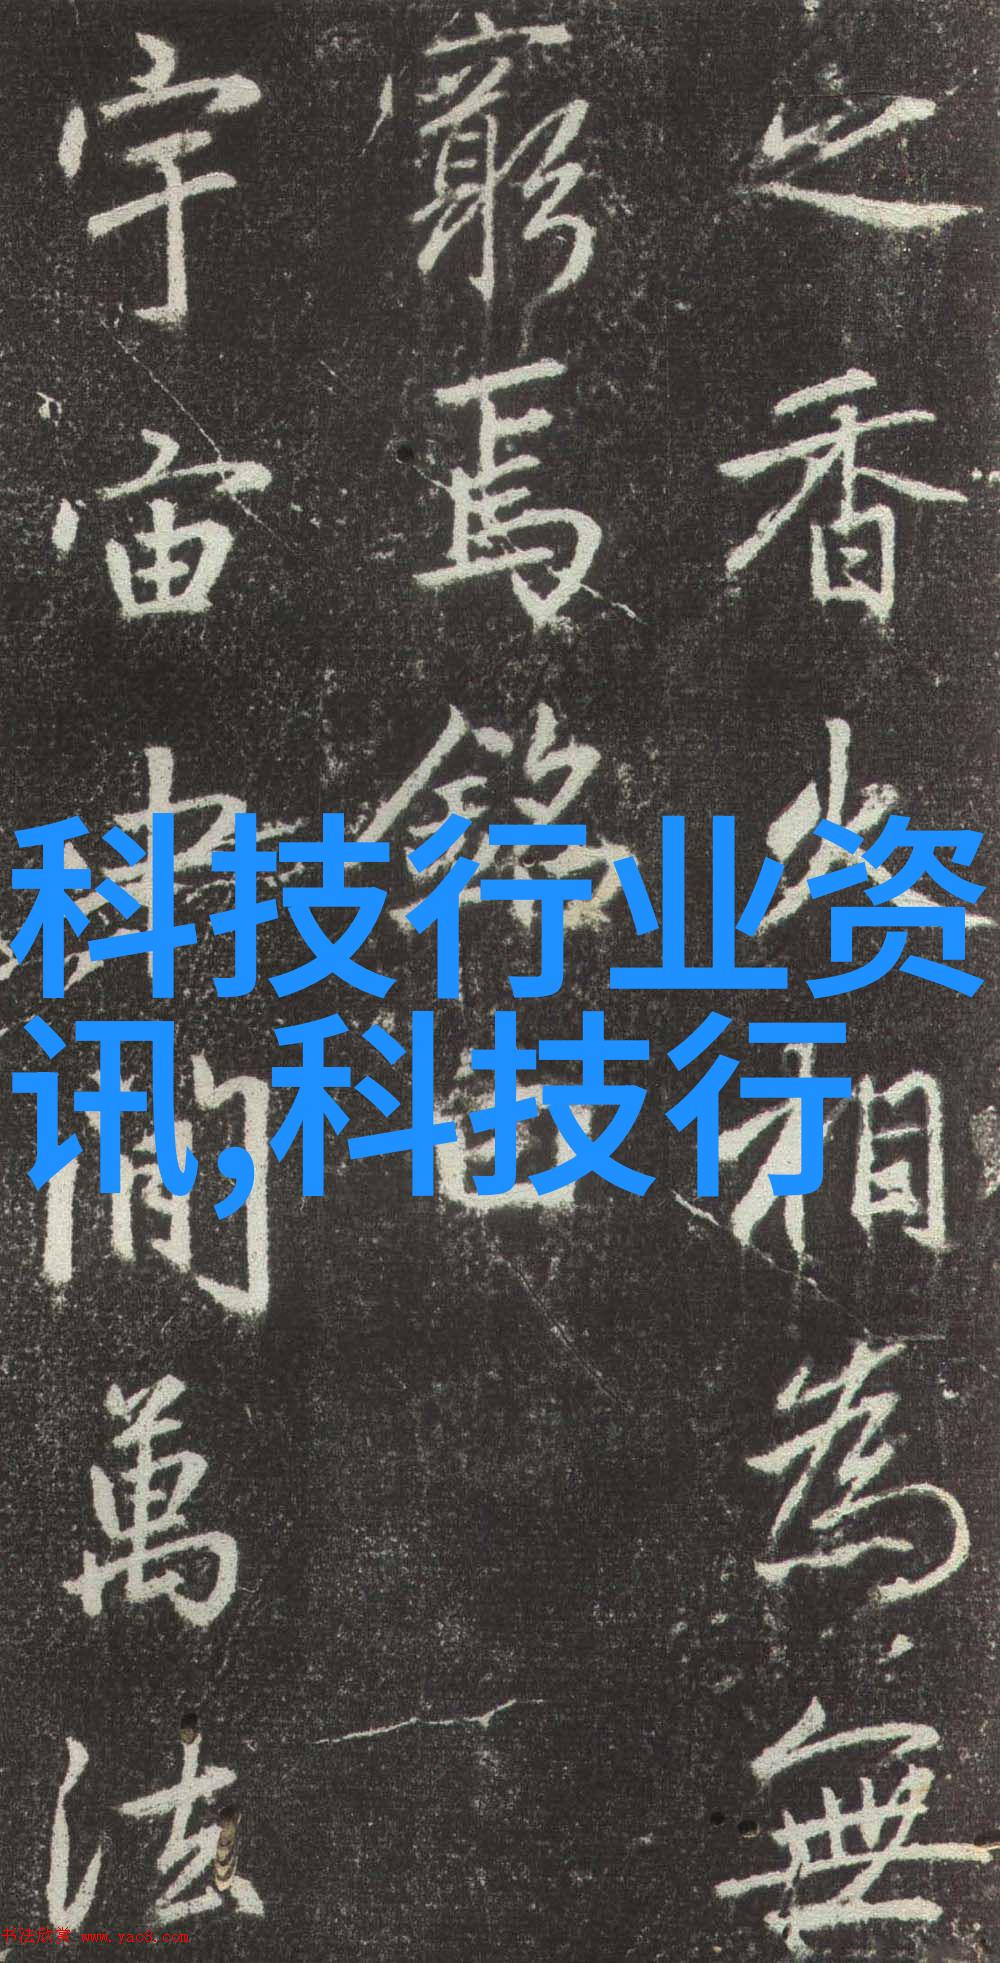 之香火相為無
窮焉銘曰
宇宙中間萬法
科技行业资
讯,科技行
书法欣赏 www.yac8.com